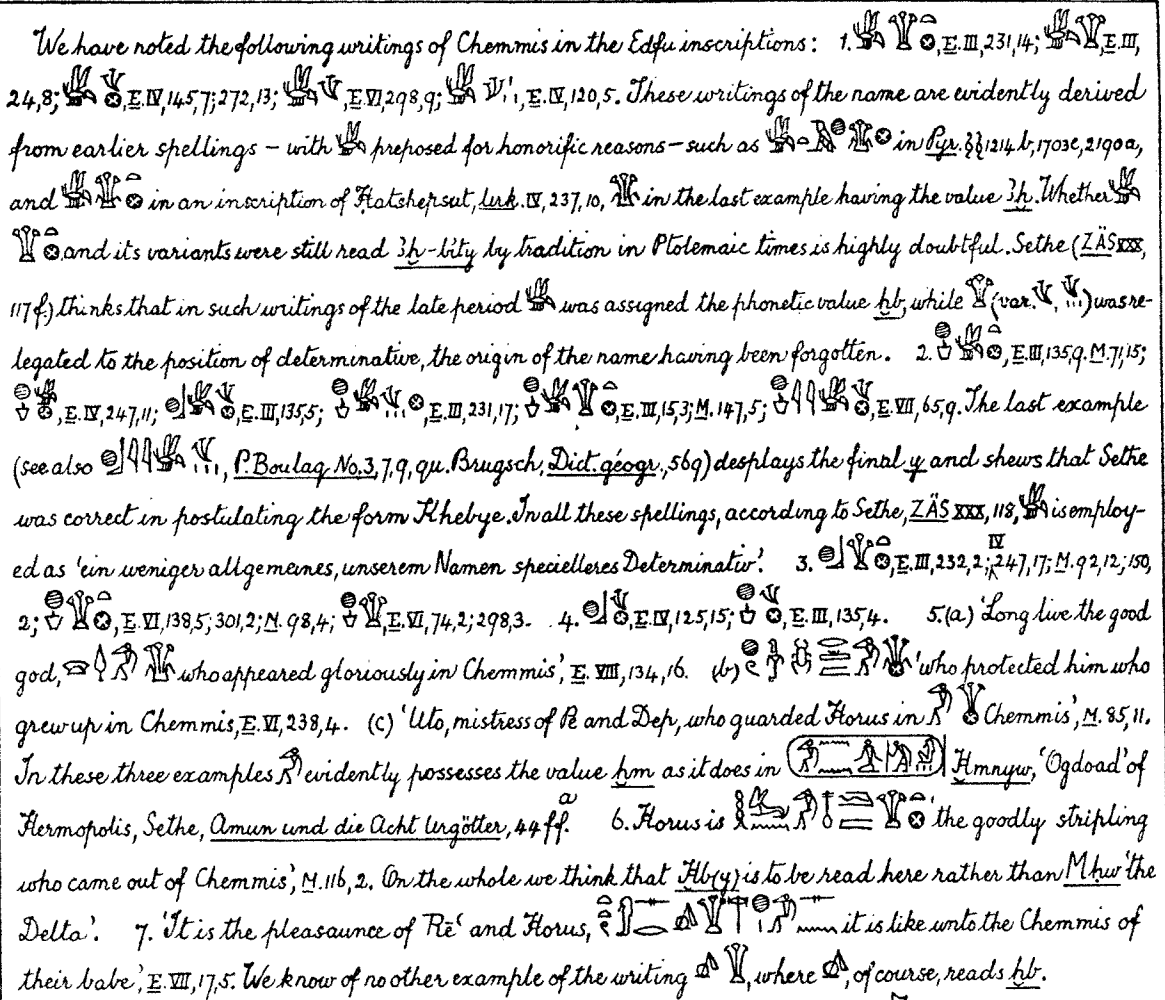 We have noted the following writings of Chemmis in the Edfu inscriptions: 1. , E. III, 231, 14; , E. III,
24, 8; , E. IV, 145, 7; 272, 13; , E. VI 298, 9; , E. IV, 120, 5. These writings of the name are evidently derived
from earlier spellings – with preposed for honorific reasons – such as in Pyr. §§ 1214 b, 1703c, 2190 a,
and in an inscription of Hatshepsut, Urk. IV, 237, 10, in the last example having the value ꜣḫ. Whether
and its variants were still read ꜣḫ-bity by tradition in Ptolemaic times is highly doubtful. Sethe (ZÄS XXX,
117 f.) thinks that in such writings of the late period was assigned the phonetic value ḫb, while (var. , ) was re-
legated to the position of determinative, the origin of the name having been forgotten. 2. , E. III, 135, 9. M. 71, 15;
, E. IV, 247, 11; , E. III, 135, 5; , E. III, 231, 17; , E. III, 15, 3; M. 147, 5; , E. VII, 65, 9. The last example
(see also , P. Boulaq No. 3, 7, 9, qu. Brugsch, Dict. géogr., 569) desplays the final y and shews that Sethe
was correct in postulating the form Khebye. In all these spellings, according to Sethe, ZÄS XXX, 118, is employ-
ed as 'ein weniger allgemeines, unserem Namen specielleres Determinativ'. 3. , E. III, 232, 2; IV 247, 17; M. 92, 12; 150,
2; , E. VI, 138, 5; 301, 2; M. 98, 4; , E. VI, 74, 2; 298, 3. 4. , E. IV, 125, 15; , E. III, 135, 4. 5. (a) 'Long live the good
god, who appeared gloriously in Chemmis', E. VIII, 134, 16. (b) 'who protected him who
grew up in Chemmis, E. VI, 238, 4. (c) 'Uto, mistress of Pē and Dep, who guarded Horus in Chemmis', M. 85, 11.
In these three examples evidently possesses the value ḫm as it does in Ḫmnyw, 'Ogdoad' of
Hermopolis, Sethe, Amun und die Acht Urgötter, 44 ff. a 6. Horus is 'the goodly stripling
who came out of Chemmis', M. 116, 2. On the whole we think that Ḫb(y) is to be read here rather than Mḥw 'the
Delta'. 7. 'It is the pleasaunce of Rēʿ and Horus, it is like unto the Chemmis of
their babe', E. VII, 17, 5. We know of no other example of the writing , where , of course, reads ḫb.